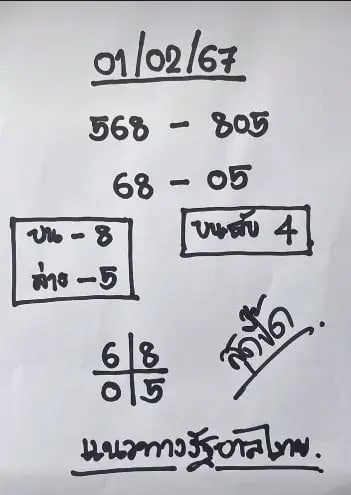 01/02/67
568 - 805
68 - 05
บน - 8
ล่าง - 5
บนลับ 4
6|8
0|5
สุดปี๊ด.
แนวทางรัฐบาลไทย.